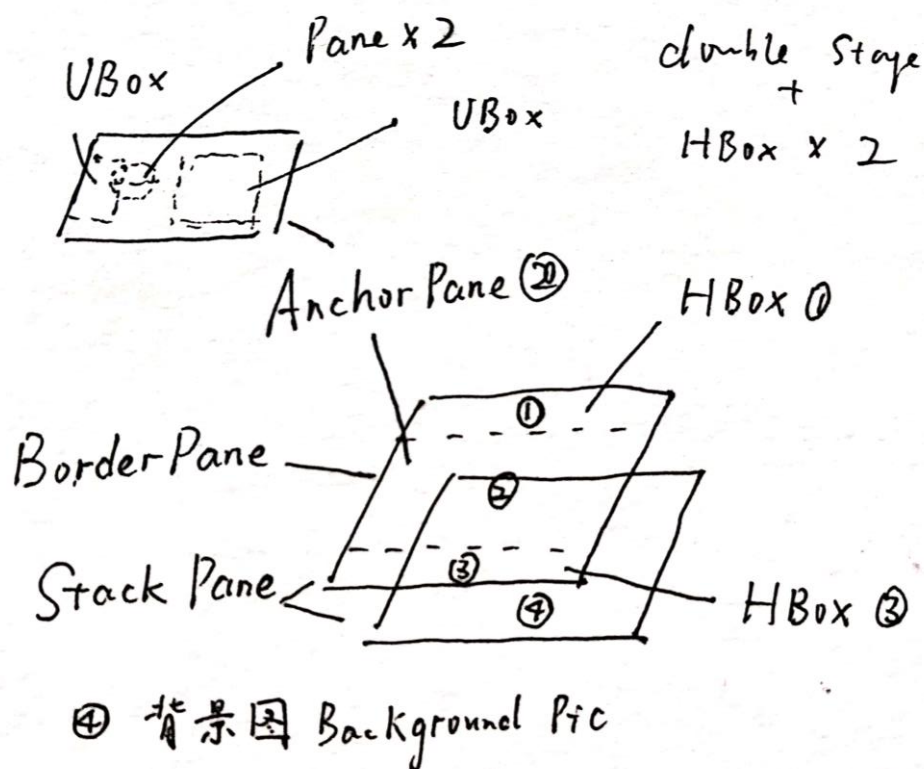 Pane x 2
UBox
UBox
double Stage
+
HBox x 2
AnchorPane ②
HBox ①
①
BorderPane
②
③
Stack Pane
④
HBox ③
④ 背景图 Background Pic